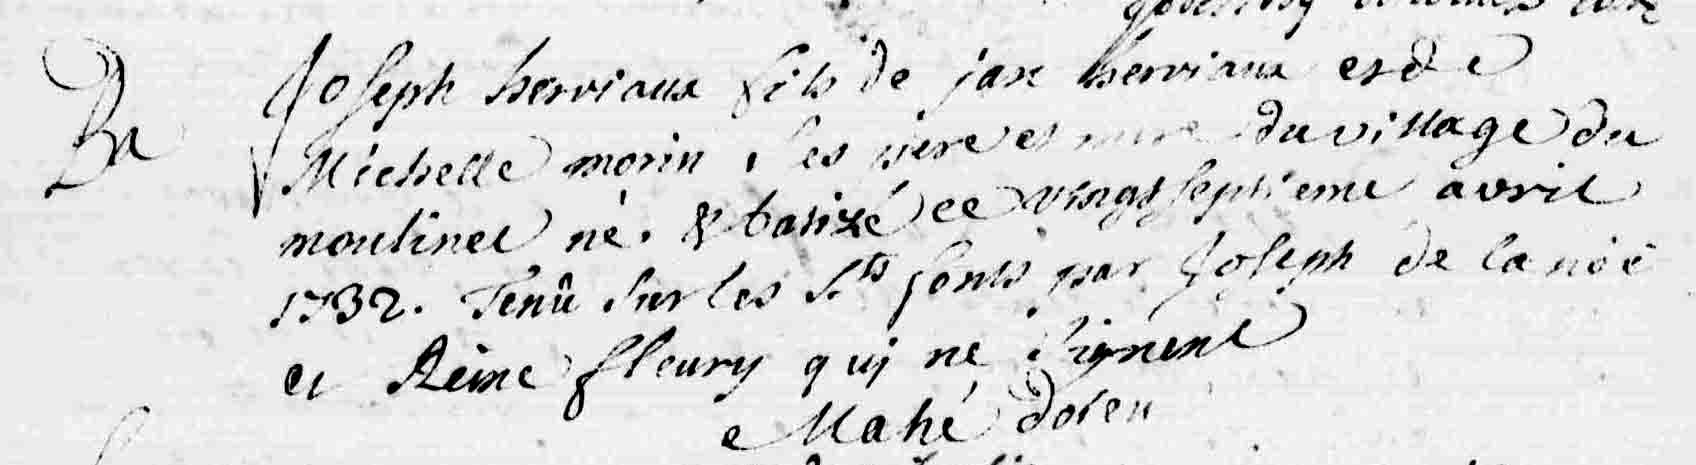 Ba
Joseph herviaux fils de jan herviaux et de
Michelle morin, ses pere et mere du village du
moulinet né. & batizé ce vingt septieme avril
1732. Tenû sur les Sts fonts par Joseph de la noë
et Reine fleury qui ne signent
Mahé doyen